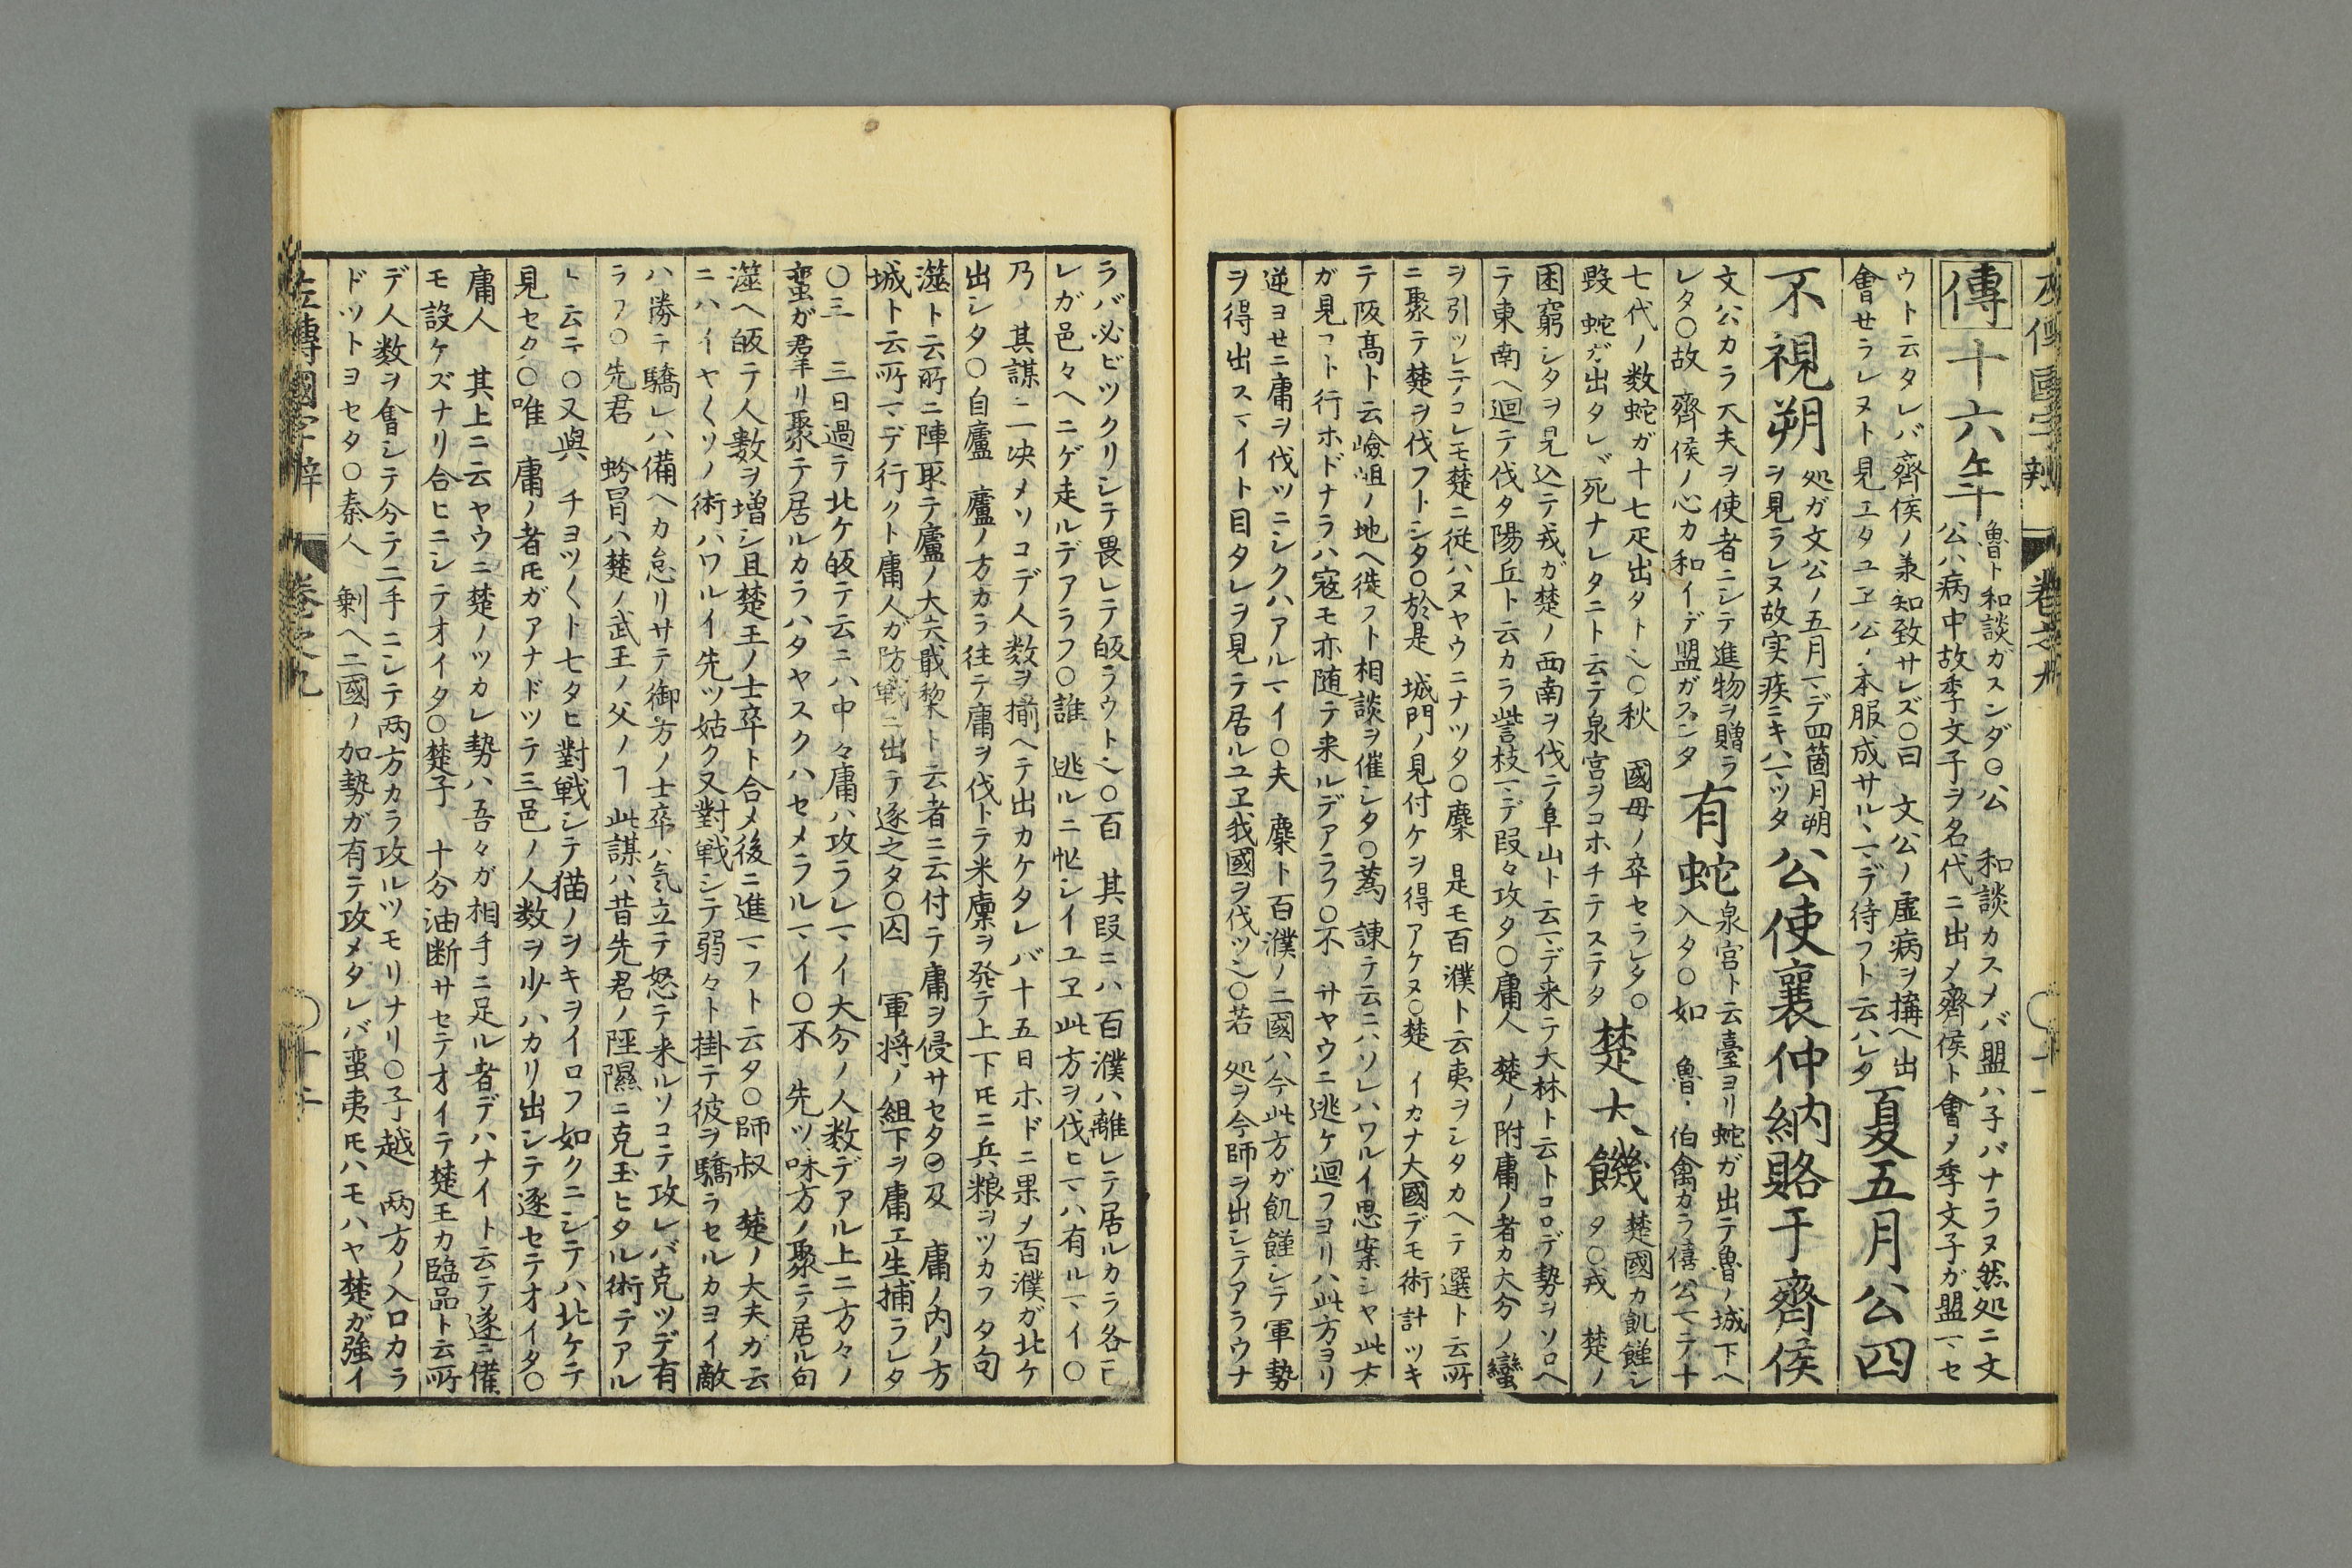 左傳國字辨 卷之九 十一
傳十六年
魯ト和談ガスンダ〇公 和談カスメバ盟ハ子バナラヌ然処ニ文
公ハ病中故季文子ヲ名代ニ出メ齊侯ト會〆季文子ガ盟マセ
ウト云タレバ齊侯ノ兼知致サレズ〇曰 文公ノ虚病ヲ搆ヘ出
會せラレヌト見エタユヱ公ノ本服成サルヽマデ待フト云ハレタ
夏五月公四
不視朔
処ガ文公ノ五月マデ四箇月朔
ヲ見ラレヌ故実疾ニキハマツタ
公使襄仲納賂于齊侯
文公カラ大夫ヲ使者ニシテ進物ヲ贈ラ
レタ〇故 齊侯ノ心カ和イデ盟ガスンタ
有蛇
泉宮ト云臺ヨリ蛇ガ出テ魯ノ城下ヘ
入タ〇如 魯ノ伯禽カラ僖公マテ十
七代ノ数蛇ガ十七疋出タト也〇秋 國母ノ卒セラレタ〇
毀 蛇ガ出タレバ死ナレタニト云テ泉宮ヲコホチテステタ
楚大饑
楚國カ飢饉シ
タ〇戎 楚ノ
困窮シタヲ見込テ戎ガ楚ノ西南ヲ伐テ阜山ト云マデ来テ大林ト云トコロデ勢ヲソロヘ
テ東南ヘ迴テ伐タ陽丘ト云カラ訾枝マデ段々攻タ〇庸人 楚ノ附庸ノ者カ大分ノ蠻
ヲ引ツレテコレモ楚ニ従ハヌヤウニナツタ〇麇 是モ百濮ト云夷ヲシタカヘテ選ト云所
ニ聚テ楚ヲ伐フトシタ〇於是 城門ノ見付ケヲ得アケヌ〇楚 イカナ大國デモ術計ツキ
テ阪髙ト云嶮岨ノ地ヘ徙フト相談ヲ催シタ〇蒍 諌テ云ニハソレハワルイ思案シヤ此方
ガ見コト行ホドナラハ寇モ亦随テ来ルデアラフ〇不 サヤウニ逃ケ迴フヨリハ此方ヨリ
逆ヨセニ庸ヲ伐ツニシクハアルマイ〇夫 麇ト百濮ノ二國ハ今此方ガ飢饉シテ軍勢
ヲ得出スマイト目タレヲ見テ居ルユヱ我國ヲ伐ツ也〇若 処ヲ今師ヲ出シテアラウナ
ラバ必ビツクリシテ畏レテ皈ラウト也〇百 其段ニハ百濮ハ離レテ居ルカラ各己
レガ邑々ヘニゲ走ルデアラフ〇誰 逃ルニ忙シイユヱ此方ヲ伐ヒマハ有ルマイ〇
乃 其謀ニ一决メソコデ人数ヲ揃ヘテ出カケタレバ十五日ホドニ果メ百濮ガ北ケ
出シタ〇自廬 廬ノ方カラ往テ庸ヲ伐トテ米廩ヲ発テ上下トモニ兵粮ヲツカフタ句
澨ト云所ニ陣取テ廬ノ大夫戢黎ト云者ニ云付テ庸ヲ侵サセタ〇及 庸ノ内ノ方
城ト云所マデ行クト庸人ガ防戦ニ出テ逐之タ〇囚 軍将ノ組下ヲ庸エ生捕ラレタ
〇三 三日過テ北ケ皈テ云ニハ中々庸ハ攻ラレマイ大分ノ人数デアル上ニ方々ノ
蛮ガ群リ聚テ居ルカラハタヤスクハセメラルマイ〇不 先ツ味方ノ聚テ居ル句
澨ヘ皈テ人數ヲ増シ且楚王ノ士卒ト合メ後ニ進マフト云タ〇師叔 楚ノ大夫ガ云
ニハイヤ〱ソノ術ハワルイ先ツ姑ク又對戦シテ弱々ト掛テ彼ヲ驕ラセルカヨイ敵
ハ勝テ驕レハ備ヘカ怠リサテ御方ノ士卒ハ気立テ怒テ来ルソコテ攻レバ克ツデ有
ラフ〇先君 蚡冒ハ楚ノ武王ノ父ノヿ 此謀ハ昔先君ノ陘隰ニ克玉ヒタル術テアル
ト云テ〇又與 チヨツ〱ト七タヒ對戦シテ猫ノヲキヲイロフ如クニシテハ北ケテ
見セタ〇唯 庸ノ者トモガアナドツテ三邑ノ人数ヲ少ハカリ出シテ逐セテオイタ〇
庸人 其上ニ云ヤウニ楚ノツカレ勢ハ吾々ガ相手ニ足ル者デハナイト云テ遂ニ備
モ設ケズナリ合ヒニシテオイタ〇楚子 十分油断サセテオイテ楚王カ臨品ト云所
デ人数ヲ會シテ分テ二手ニシテ両方カラ攻ルツモリナリ〇子越 両方ノ入口カラ
ドツトヨセタ〇秦人 剰ヘ二國ノ加勢ガ有テ攻メタレバ蛮夷トモハモハヤ楚ガ強イ
左傳國字辨 卷之九 十二